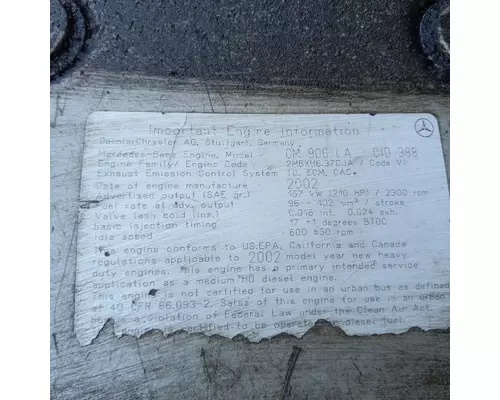 Important Engine Information
DaimlerChrysler AG, Stuttgart, Germany
Mercedes-Benz Engine, Model OM 906 LA CID 388
Engine Family/ Engine Code 2MBXH6.37DJA / Code V1
Exhaust Emission Control System TC, ECM, CAC.
Date of engine manufacture 2002
Advertised output (SAE gr.) 157 kW (210 HP) / 2300 rpm
Fuel rate at adv. output 96 - 102 mm³ / stroke
Valve lash cold (in.) 0.016 int. 0.024 exh.
basic injection timing 17 ±1 degrees BTDC
Idle speed 600 ±30 rpm
This engine conforms to US.EPA, California and Canada
regulations applicable to 2002 model year new heavy
duty engines. This engine has a primary intended service
application as a medium HD diesel engine.
This engine is not certified for use in an urban bus as defined
at 40 CFR 86.093-2. Sales of this engine for use in an urban
violation of Federal Law under the Clean Air Act.
is certified to be operated diesel fuel.